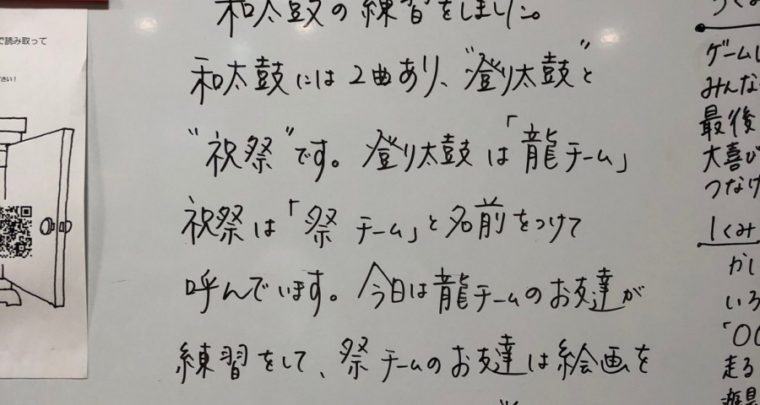 で読み取って
さい！
和太鼓の練習をしました。
和太鼓には2曲あり、"登り太鼓"と
"祝祭"です。登り太鼓は「龍チーム」
祝祭は「祭チーム」と名前をつけて
呼んでいます。今日は龍チームのお友達が
練習をして、祭チームのお友達は絵画を
ゲームし
みんな
最後
大喜び
つなげ
しくみ
かし
いろ
「〇〇
走る
遊具